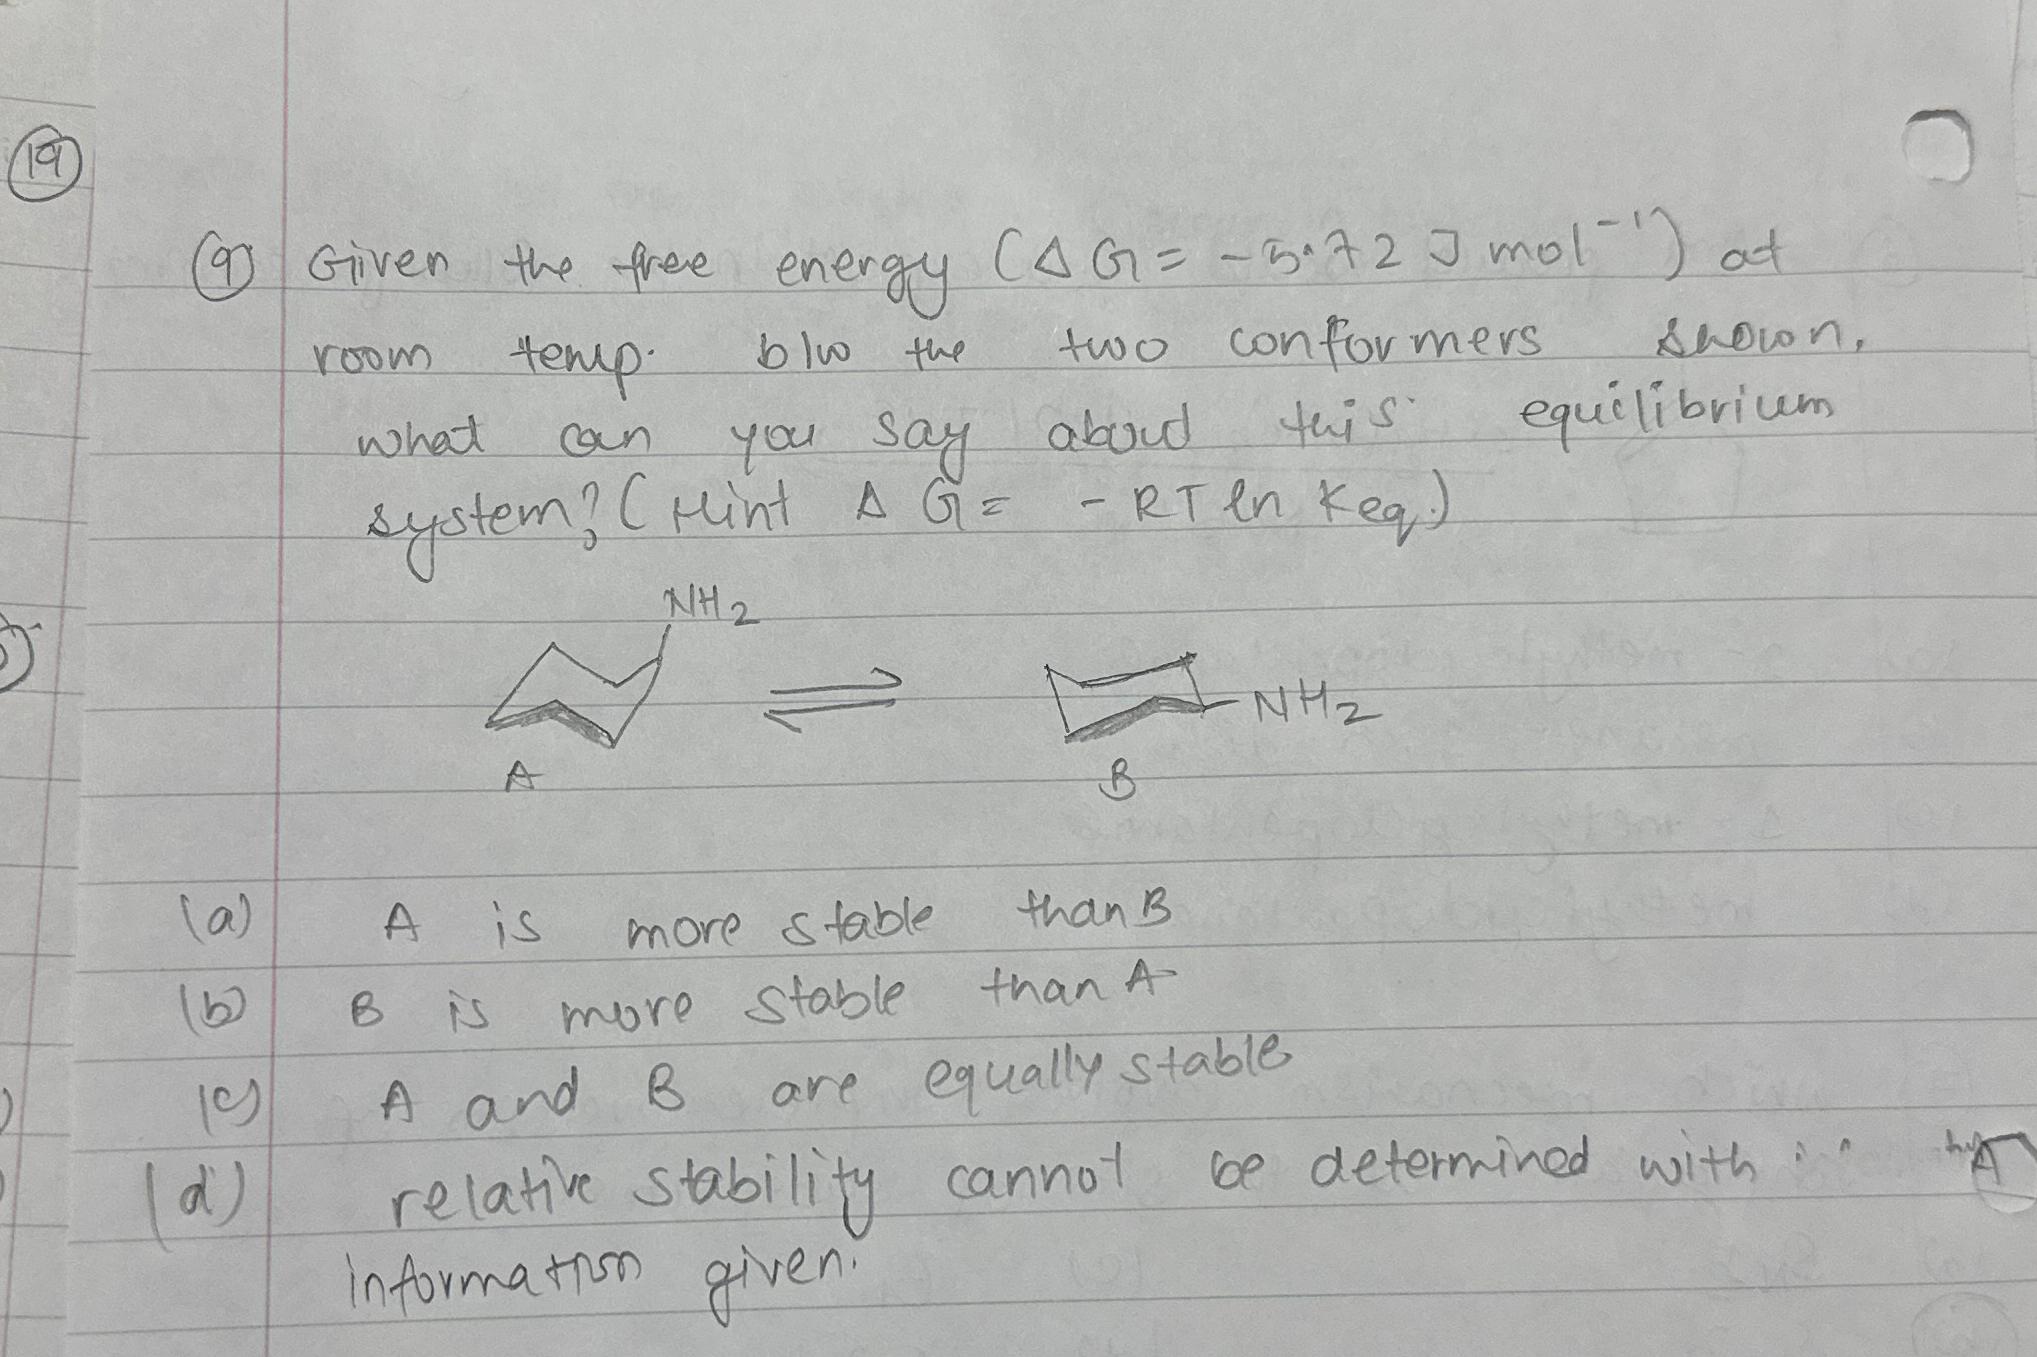 19
(9) Given the free energy (ΔG = -5.72 J mol⁻¹) at
room temp. b/w the two conformers shown,
what can you say about this equilibrium
system? (Hint ΔG = -RT ln Keq.)
NH2
NH2
A B
(a) A is more stable than B
(b) B is more stable than A
(c) A and B are equally stable
(d) relative stability cannot be determined with
information given.